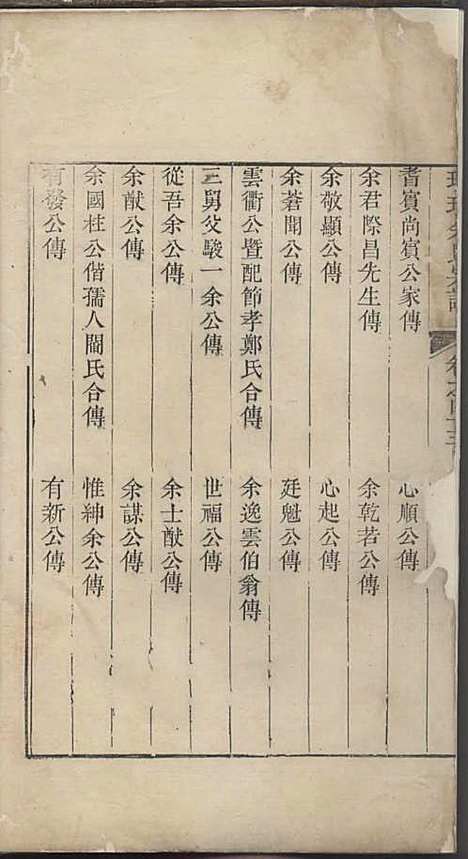 余氏宗譜 卷之四十三
耆賓尚賓公家傳 心順公傳
余君際昌先生傳 余乾若公傳
余敬顯公傳 心起公傳
余蒼聞公傳 廷魁公傳
雲衢公暨配節孝鄭氏合傳 余逸雲伯翁傳
三舅父駿一余公傳 世福公傳
從吾余公傳 余士猷公傳
余猷公傳 余謀公傳
余國柱公偕孺人閻氏合傳 惟紳余公傳
有發公傳 有新公傳